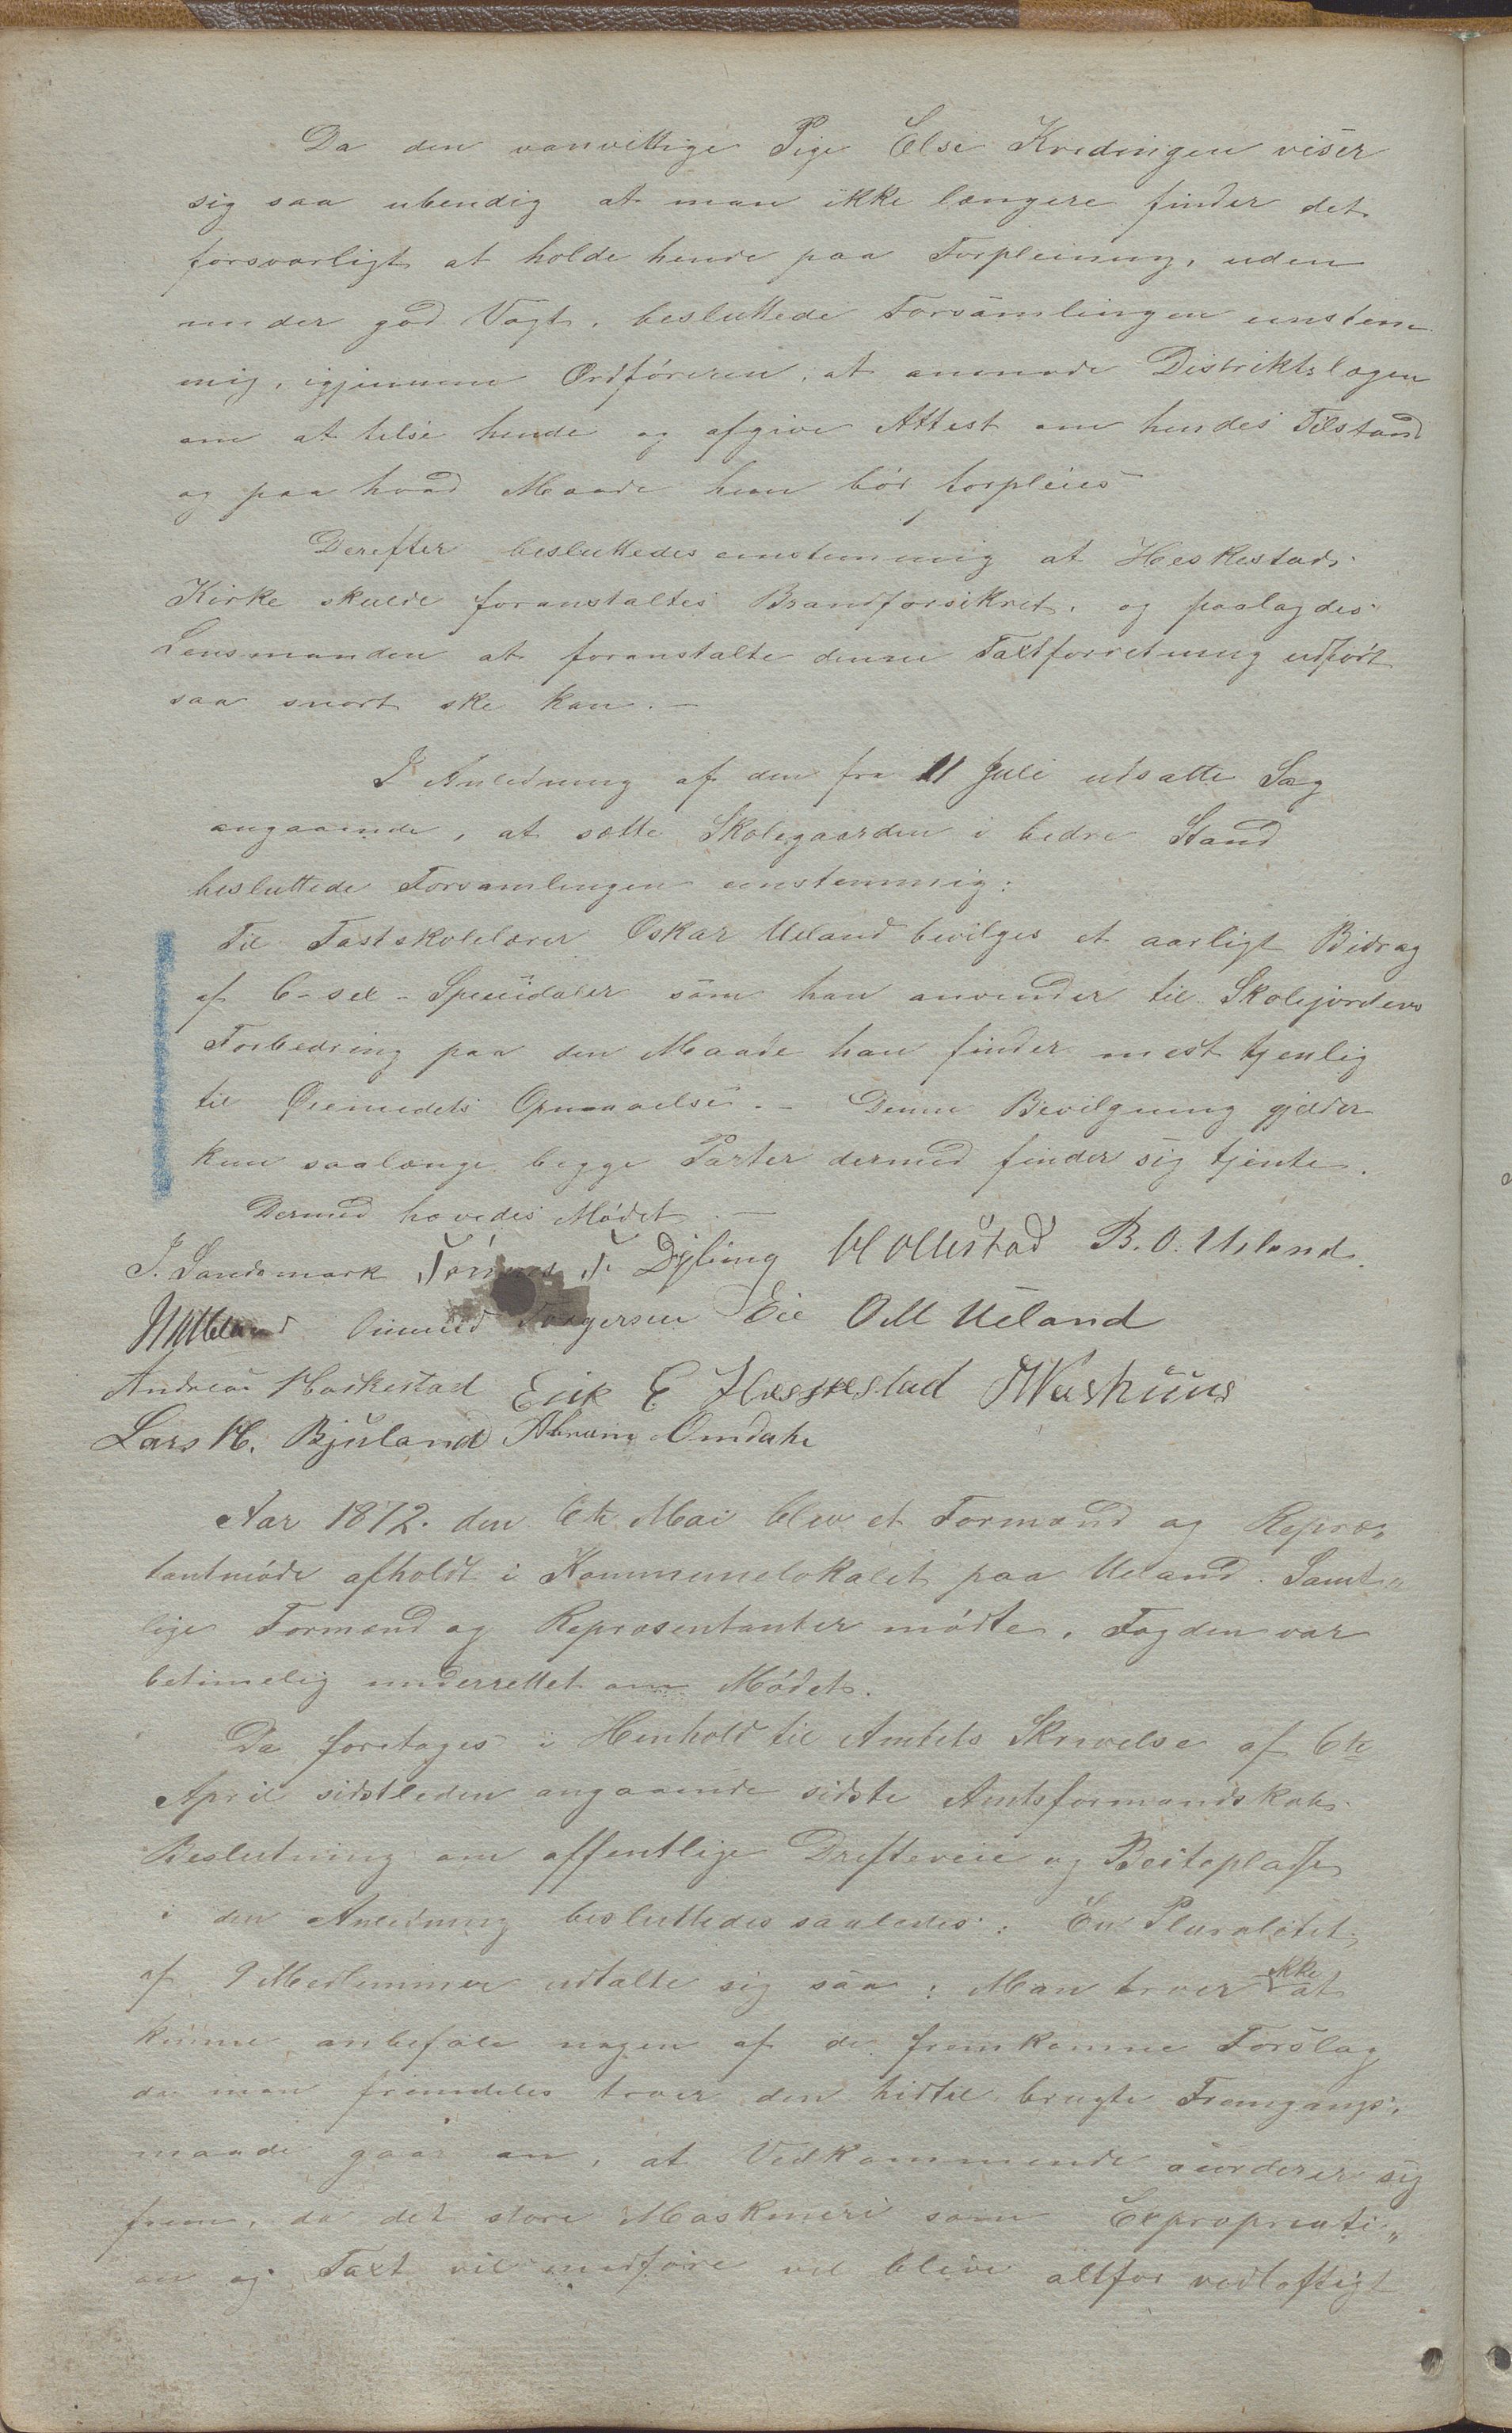 Da den vanvittige Pige Else Kvedingen viser
sig saa ubendig at man ikke længere finder det
forsvarligt at holde hende paa Forpleining, uden
under god Vagt, besluttede Forsamlingen enstem
mig, igjennem Ordføreren, at anmode Distriktslægen
om at tilse hende og afgive Attest om hendes Tilstand
og paa hvad Maade hun bør forpleies
Derefter besluttedes enstemmig at Heskestads
Kirke skulde foranstaltes Brandforsikret, og paalagdes
Lensmanden at foranstalte denne Taxtforretning udført
saa snart ske kan. —
I Anledning af den fra 11 Juli udsatte Sag
angaaende, at sætte Skolegaarden i bedre Stand
besluttede Forsamlingen enstemmig:
Til Fastskolelærer Oskar Ueland bevilges et aarligt Bidrag
af 6 - sex - Speciedaler som han anvender til Skolejordens
Forbedring paa den Maade han finder mest tjenlig
til Øiemedets Opnaaelse. — Denne Bevilgning gjælder
kun saalænge begge Parter dermed finder sig tjente.
Dermed hævedes Mødet. —
J. Sandsmark Tønnes T. Dybing H Ollestad B. O. Ueland.
Omund Torgersen Eie O M Ueland
Andreas Haskestad Eik E Hæskestad
Lars H. Bjuland Abraim Omdahl
Aar 1872. den 6te Mai blev et Formænd og Repræ„
tantmøde afholdt i Kommunelokalet paa Ueland. Samt„
lige Formænd og Repræsentanter mødte, Fogden var
betimelig underrettet om Mødet.
Da foretoges i Henhold til Amtets Skrivelse af 6te
April sidstleden angaaende sidste Amtsformandskabs
Beslutning om offentlige Drifteveie og Beitepladse
i den Anledning besluttedes saaledes: En Pluralitet
af 9 Medlemmer udtalte sig saa: Man troer ikke at
kunne anbefale nogen af de fremkomne Forslag
da man fremdeles troer den hidtil brugte Fremgangs„
maade gaar an, at Vedkommende aurderer sig
frem, da det store Maskineri som Expropriati„
on og Taxt vil medføre vil blive altfor vidtløftigt